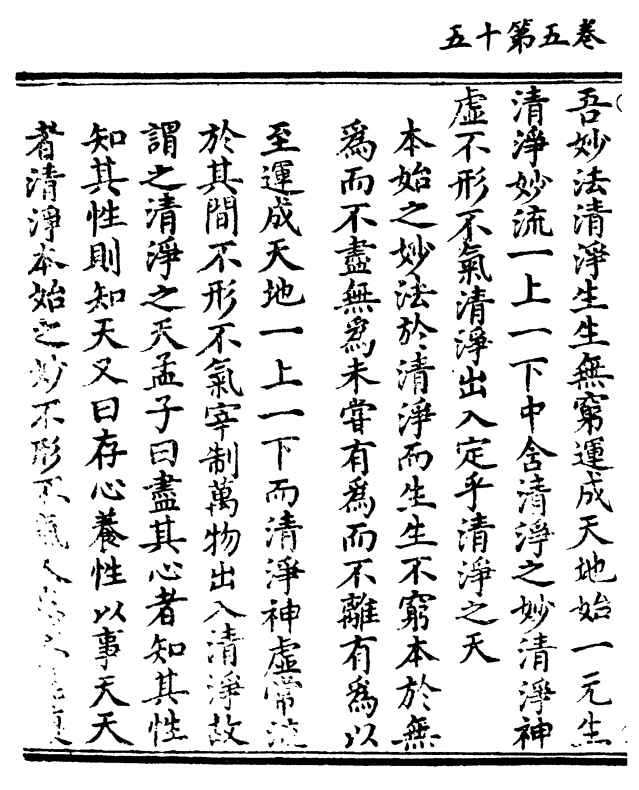 卷五第十五
吾妙法清淨生生無窮運成天地始一元生
清淨妙流一上一下中含清淨之妙清淨神
虛不形不氣清淨出入定乎清淨之天
本始之妙法於清淨而生生不窮本於無
爲而不盡無爲未嘗有爲而不離有爲以
至運成天地一上一下而清淨神虛常流
於其間不形不氣宰制萬物出入清淨故
謂之清淨之天孟子曰盡其心者知其性
知其性則知天又曰存心養性以事天天
者清淨本始之妙不形不氣